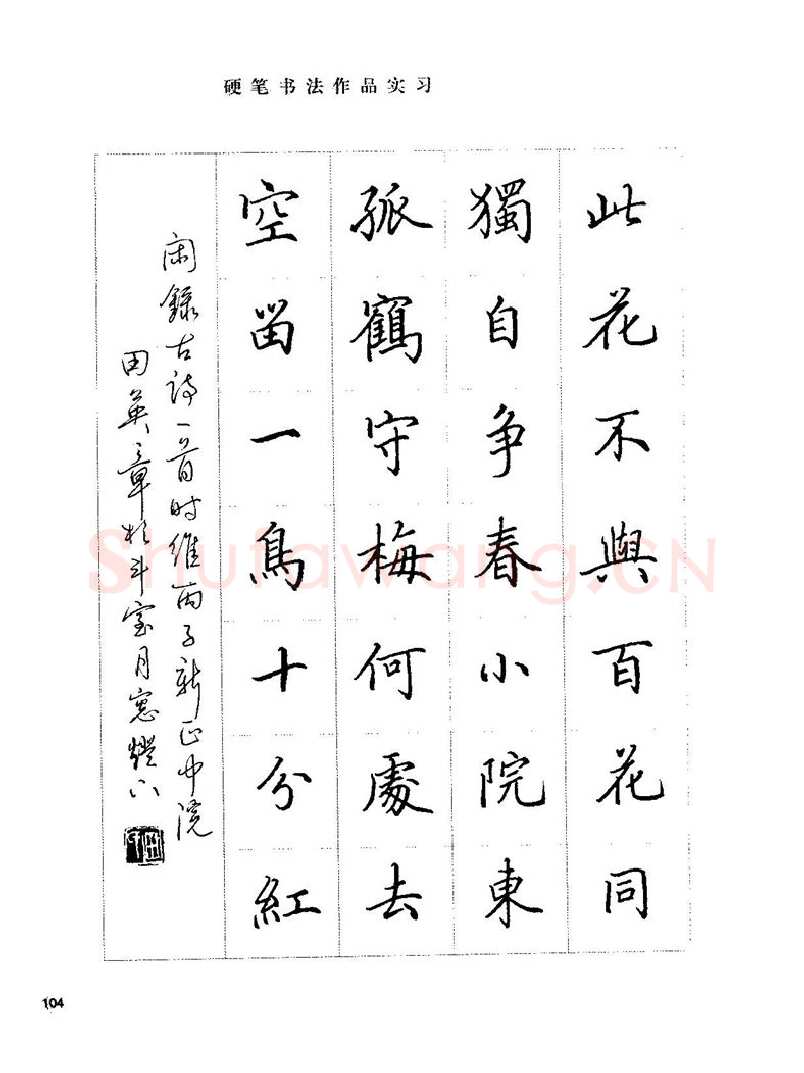 硬笔书法作品实习
此花不與百花同
獨自争春小院東
孤鶴守梅何處去
空留一鳥十分紅
閑錄古詩一首时維丙子新正中浣
田英章於斗室月窗燈下
Shufawang.CN
104